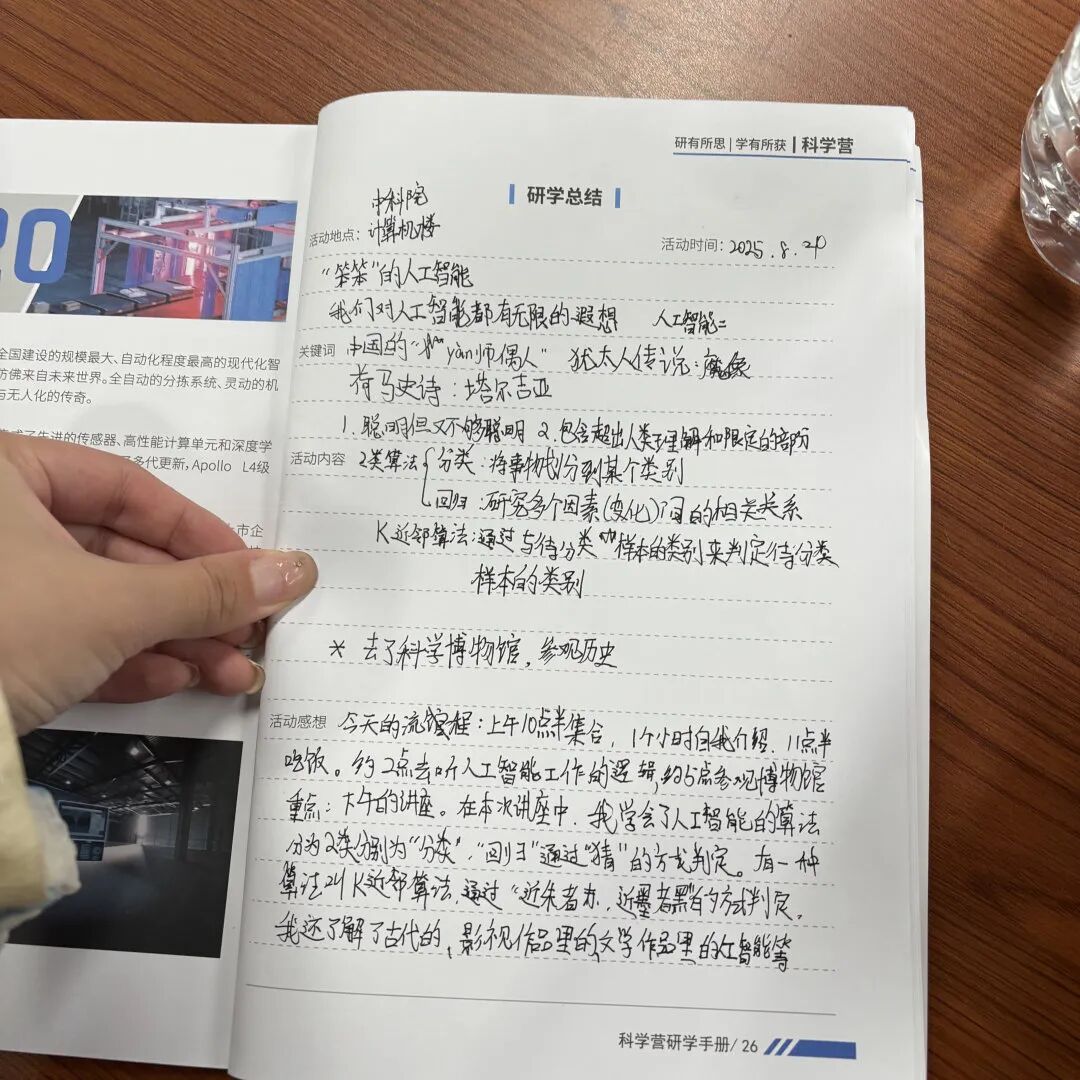 研有所思 | 学有所获 | 科学营
研学总结
中科院
活动地点： 计算机楼
活动时间： 2025.8.20
"笨笨"的人工智能
我们对人工智能都有无限的遐想 人工智能：
关键词 中国的"偃yàn师偶人" 犹太人传说：魔像
荷马史诗：塔尔吉亚
1.聪明但又不够聪明 2.包含超出人类了理解和限定的部份
活动内容 2类算法 分类：将事物划分到某个类别
回归：研究多个因素(变化)间的相关关系
K近邻算法：通过与待分类 样本的类别来判定待分类
样本的类别
* 去了科学博物馆，参观历史
活动感想 今天的流程：上午10点半集合，1个小时自我介绍，11点半
吃饭。约2点去听人工智能工作的逻辑，约5点参观博物馆
重点：下午的讲座。在本次讲座中，我学会了人工智能的算法
分为2类分别为"分类"，"回归"通过"猜"的方式判定。有一种
算法叫K近邻算法，通过"近朱者赤，近墨者黑"的方式判定。
我还了解了古代的，影视作品里的，文学作品里的人工智能等
科学营研学手册/ 26
20
全国建设的规模最大、自动化程度最高的现代化智
仿佛来自未来世界。全自动的分拣系统、灵动的机
与无人化的传奇。
了先进的传感器、高性能计算单元和深度学
多代更新，Apollo L4级
市企